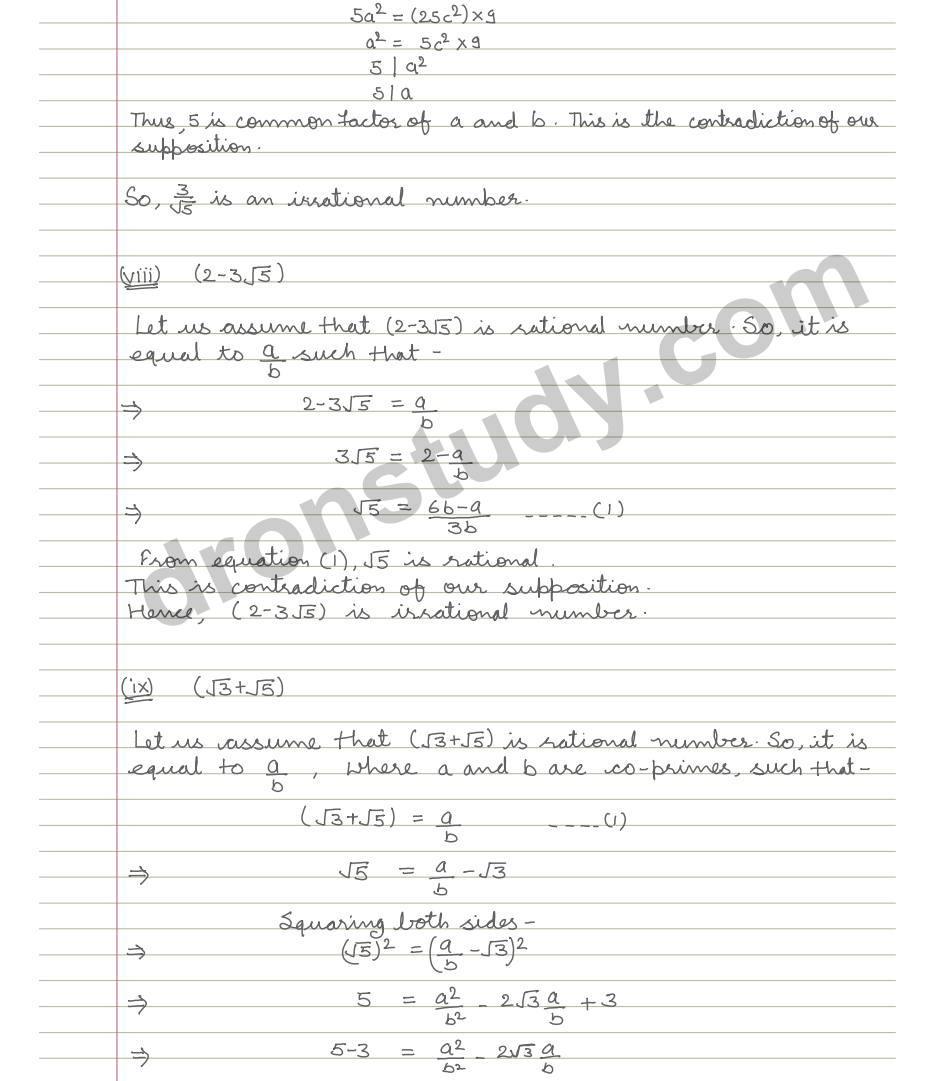 5a² = (25c²)×9
a² = 5c²×9
5 | a²
5 | a
Thus, 5 is common factor of a and b. This is the contradiction of our
supposition.
So, 3/√5 is an irrational number.
(viii) (2-3√5)
Let us assume that (2-3√5) is rational number. So, it is
equal to a/b such that -
⇒ 2-3√5 = a/b
⇒ 3√5 = 2-a/b
⇒ √5 = (6b-a)/3b -----(1)
From equation (1), √5 is rational.
This is contradiction of our supposition.
Hence, (2-3√5) is irrational number.
(ix) (√3+√5)
Let us assume that (√3+√5) is rational number. So, it is
equal to a/b, where a and b are co-primes, such that-
(√3+√5) = a/b ----(1)
⇒ √5 = a/b -√3
Squaring both sides-
⇒ (√5)² = (a/b -√3)²
⇒ 5 = a²/b² - 2√3 a/b + 3
⇒ 5-3 = a²/b² - 2√3 a/b
dronstudy.com